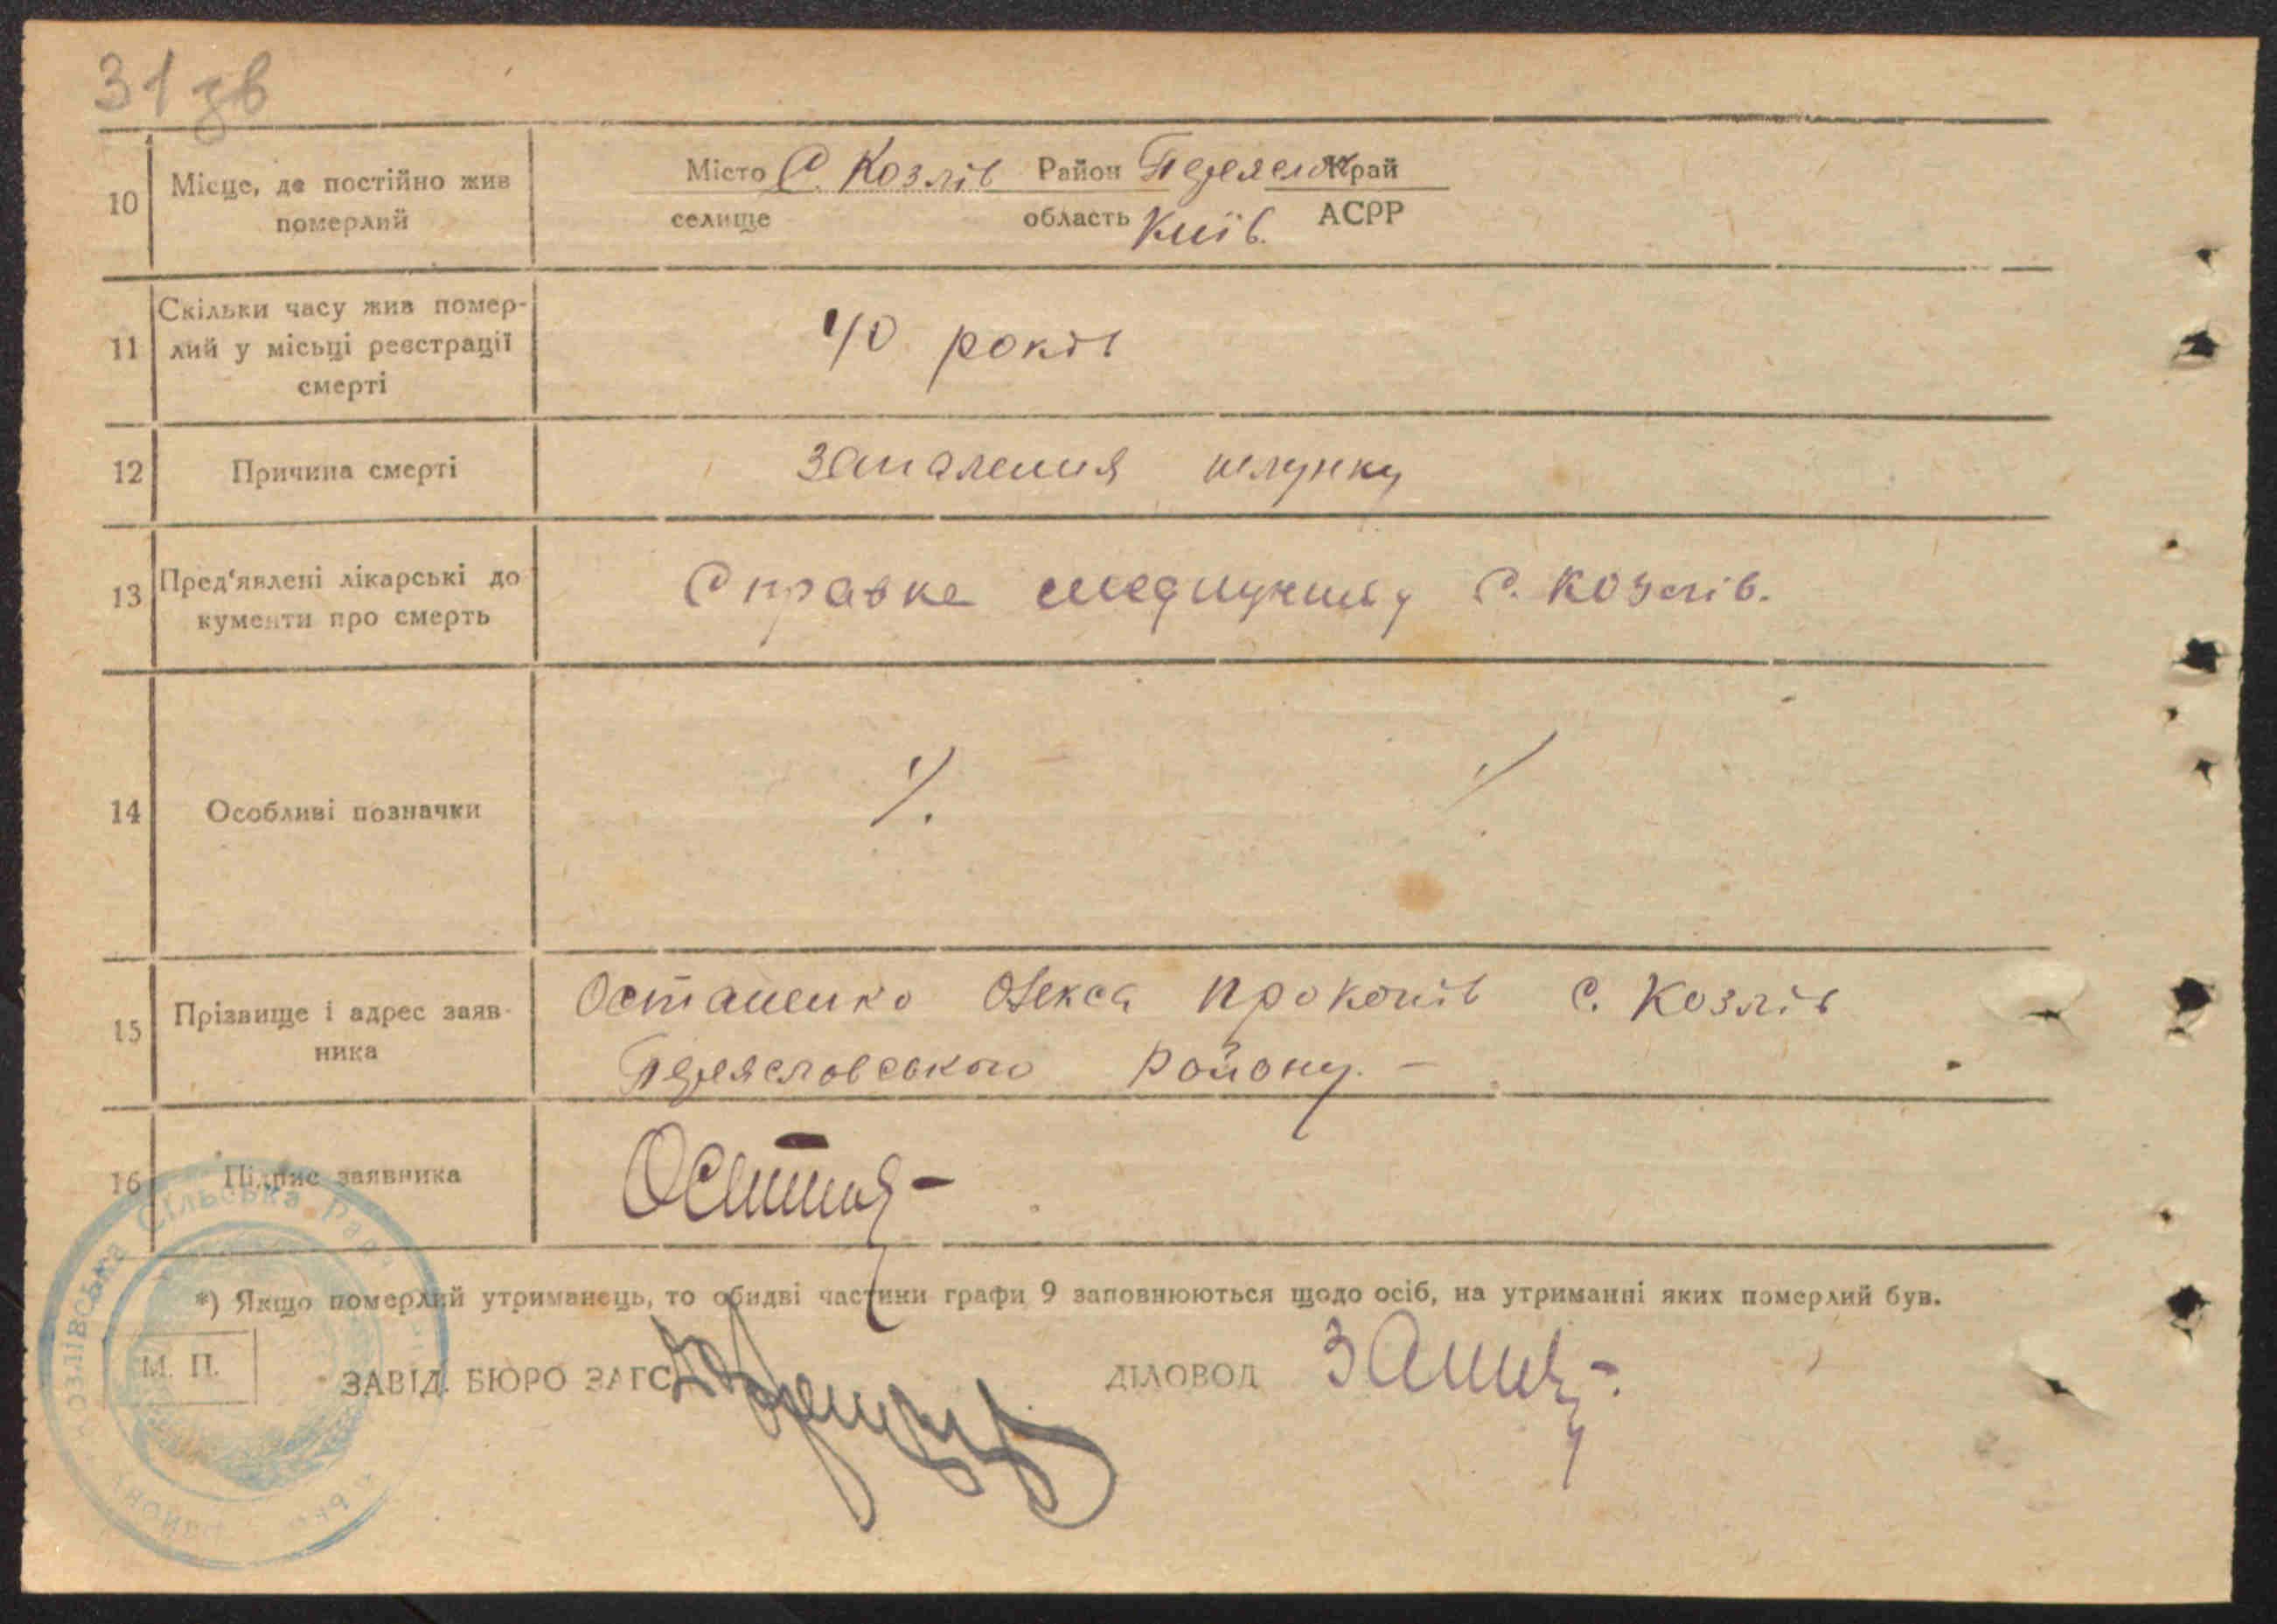 31 зв
10 Місце, де постійно жив померлий
Місто С. Козлів Район Переяслів Край
селище область Київ. АСРР
11 Скільки часу жив помер-
лий у місьці реєстрації
смерті
40 років
12 Причина смерті запалення шлунку
13 Пред'явлені лікарські до
кументи про смерть
Справке медпункту С. Козлів.
14 Особливі позначки ٪ ٪
15 Прізвище і адрес заяв-
ника
Осташенко Олекса Прокопів С. Козлів
Переясловського району. —
16 Підпис заявника
*) Якщо померлий утриманець, то обидві частини графи 9 заповнюються щодо осіб, на утриманні яких померлий був.
М. П. ЗАВІД. БЮРО ЗАГС ДІЛОВОД
Козлівська Сільська Рада